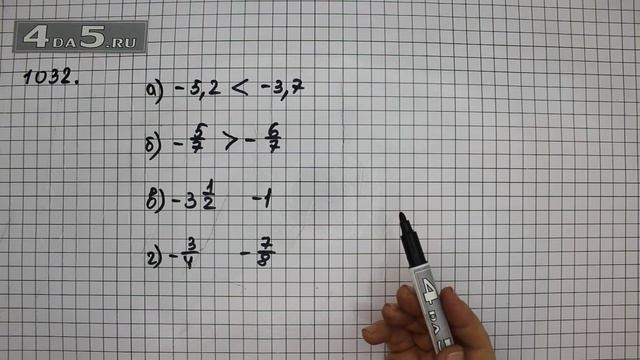 4DA5.RU
1032.
а) -5,2 < -3,7
б) - 5/7 > - 6/7
в) -3 1/2 -1
г) - 3/4 - 7/8
4 DA 5